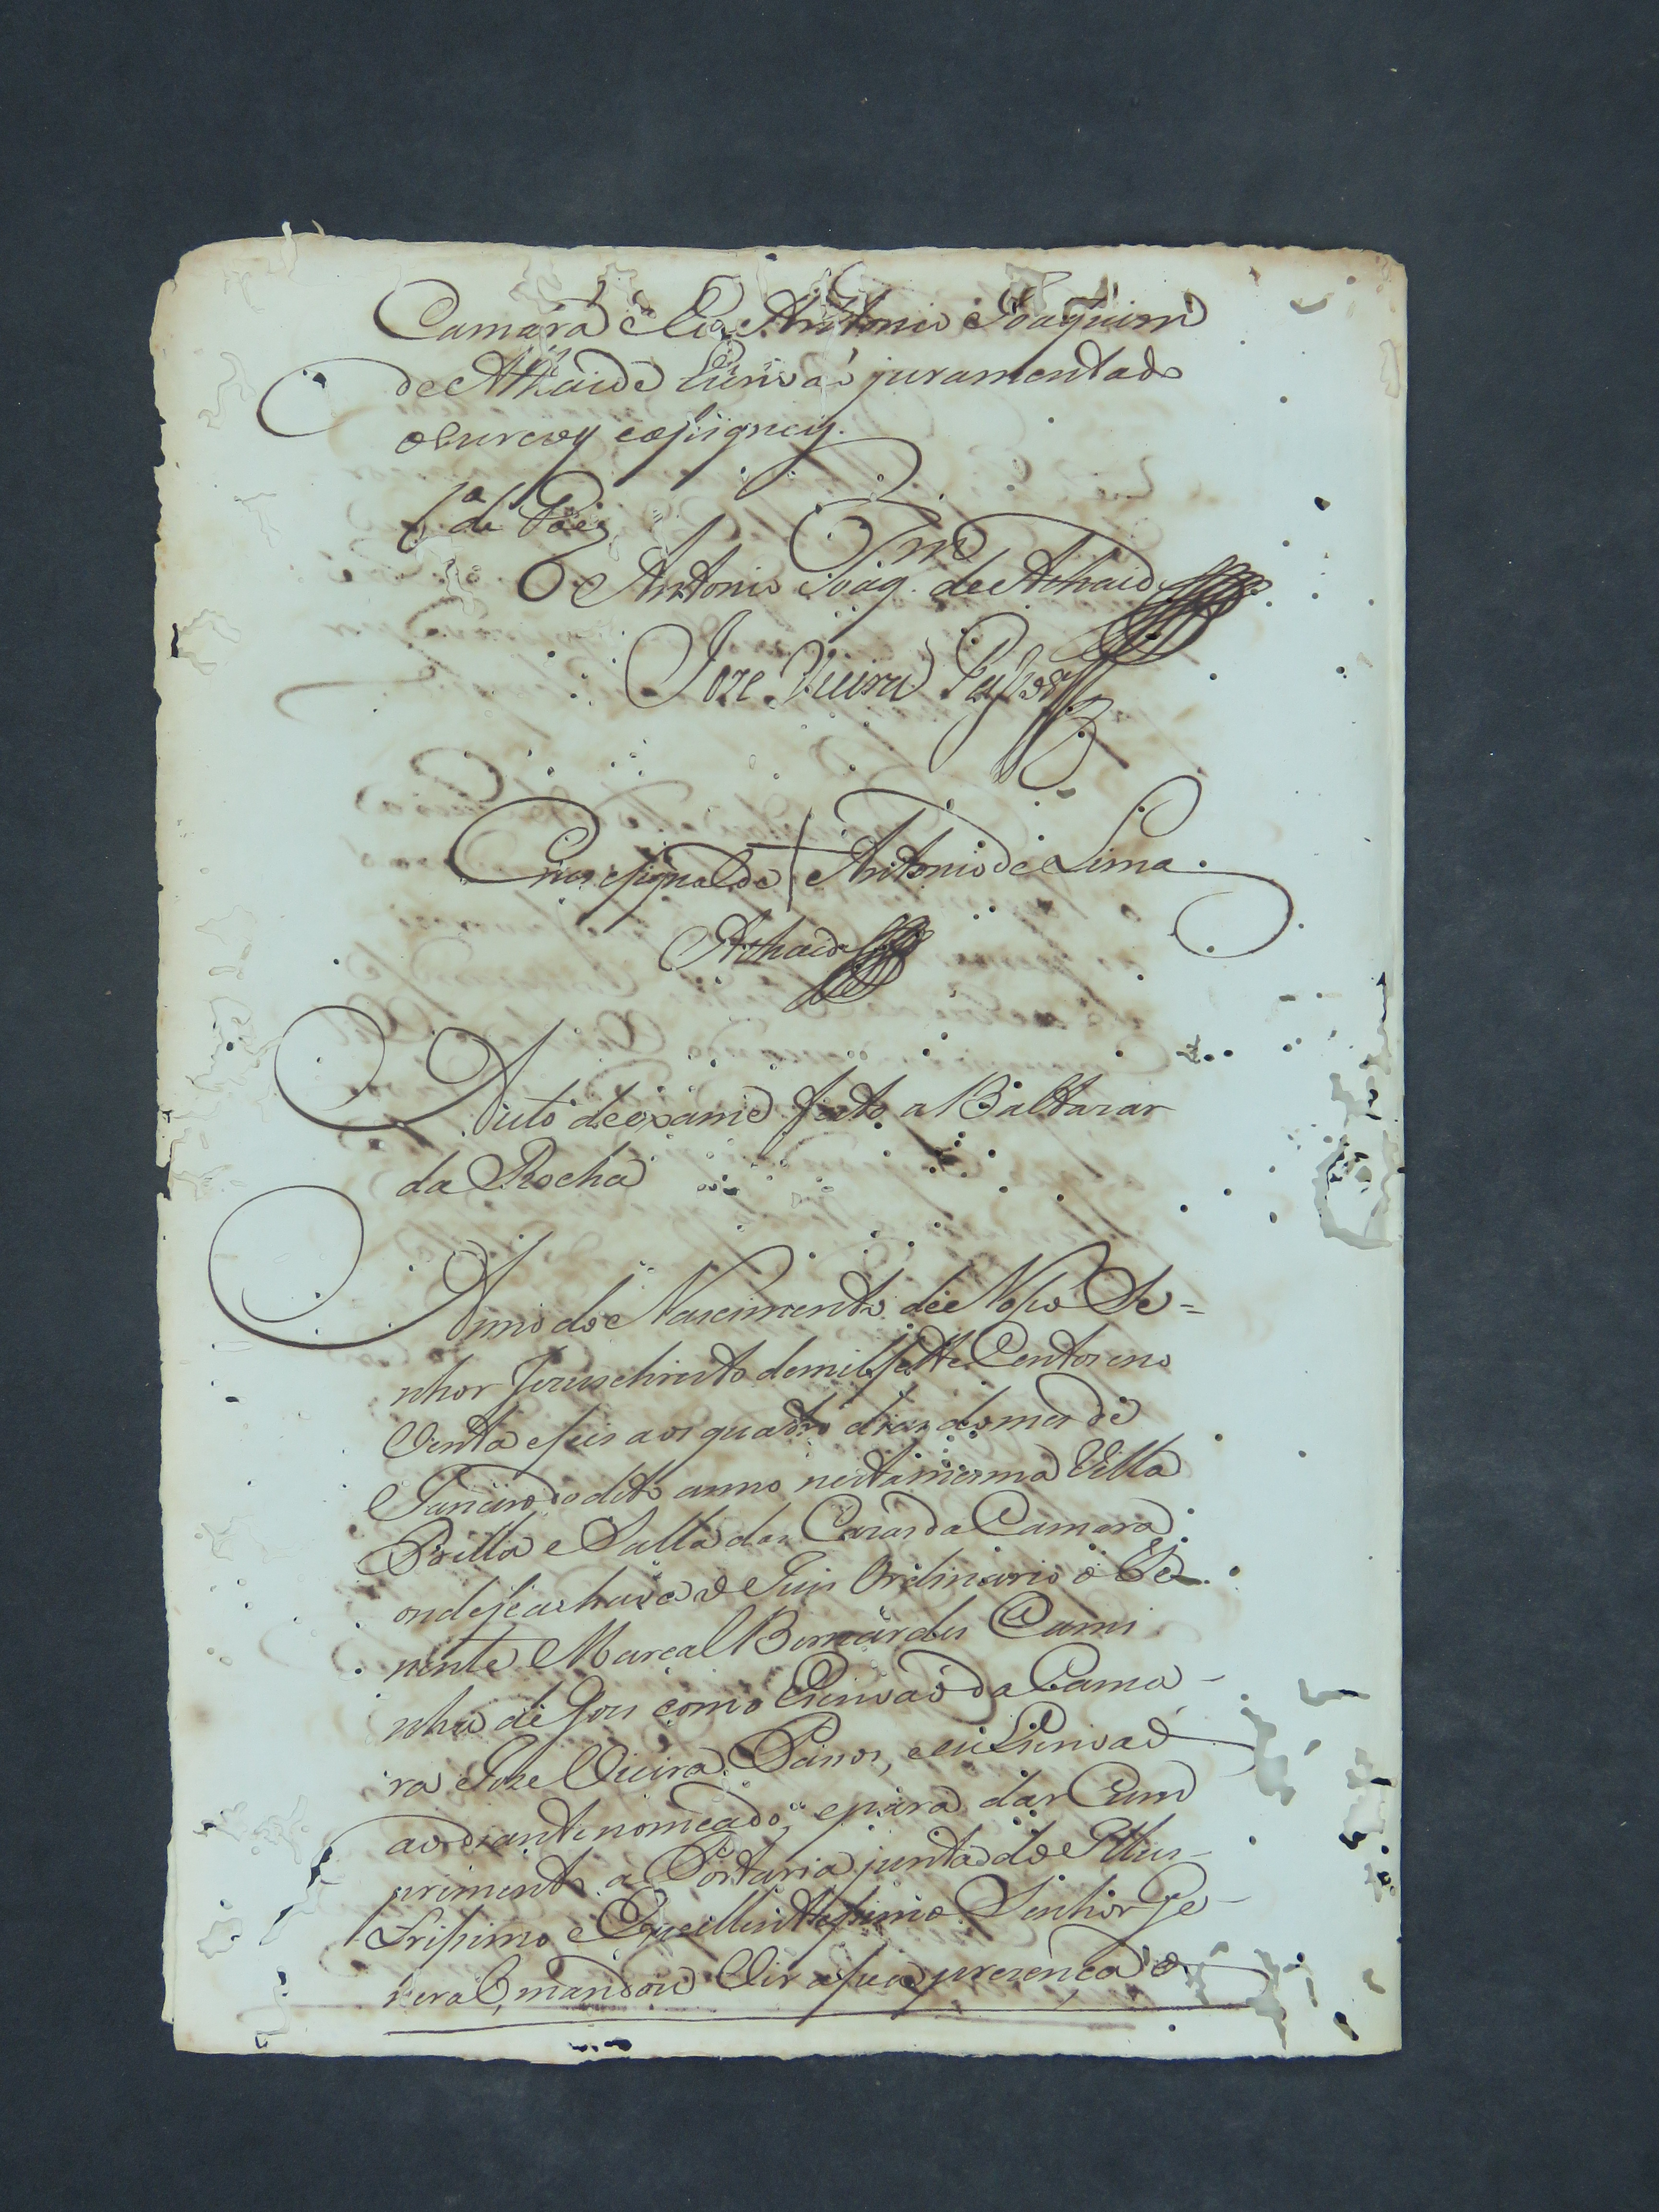 Camara Eu Antonio Joaquim
de Athaide Escrivaõ juramentado
escrevy e aſsigney.
Antonio Joaqm. de Athaide
Joze Vieira Paſsos
Cruz e ſignal de Antonio de Lima.
Athaide
Auto de exame feito a Baltazar
da Rocha
Anno do Nascimento de Noſso Se=
nhor Jezus christo de mil ſette Centos eno
Venta eſeis aos quatro dias do mes de
Janeiro do dito anno nesta mesma Villa
e Salla das Cazas da Camara
onde ſe achava o Juis Ordinario o Te
nente Marcal Bernardes Cami
nha de Goes como Escrivaõ da Cama-
ra Joze Vieira Passos, e eu Escrivaõ
ao diante nomeado, e para dar Cum
primento a Portaria junta do Illus-
triſsimo e Excellentiſsimo Senhor Ge-
neral, mandou Vir a ſua prezença o